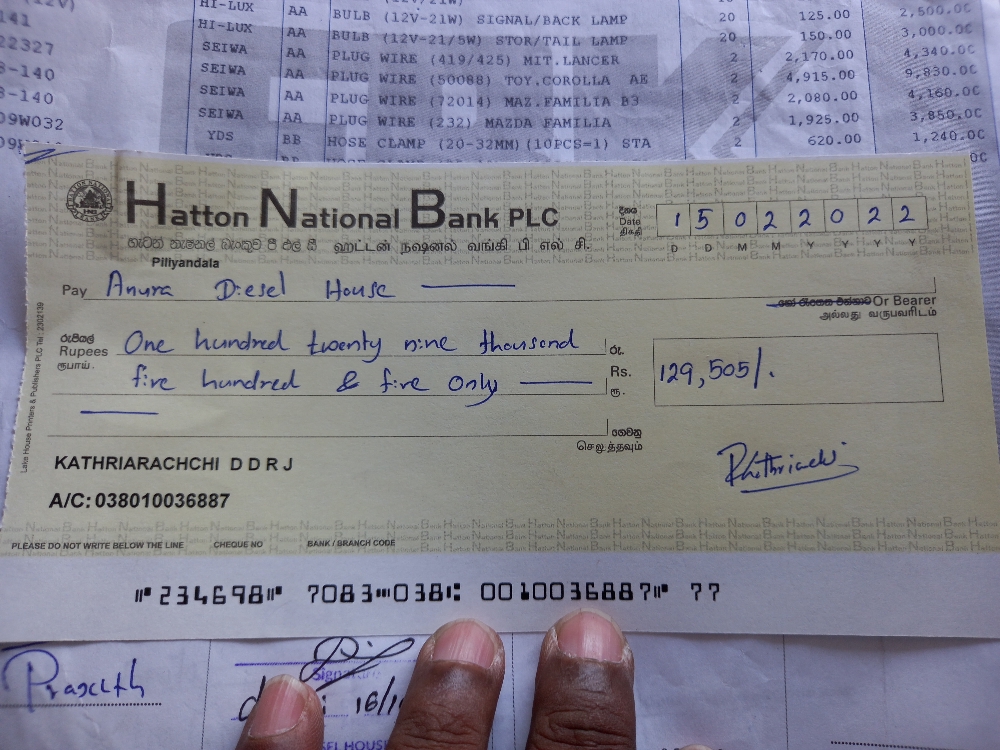 HI-LUX AA BULB (12V-21W) SIGNAL/BACK LAMP 20 125.00 2,500.00
HI-LUX AA BULB (12V-21/5W) STOR/TAIL LAMP 20 150.00 3,000.00
22327 SEIWA AA PLUG WIRE (419/425) MIT.LANCER 2 2,170.00 4,340.00
-140 SEIWA AA PLUG WIRE (50088) TOY.COROLLA AE 2 4,915.00 9,830.00
-140 SEIWA AA PLUG WIRE (72014) MAZ.FAMILIA B3 2 2,080.00 4,160.00
09W032 SEIWA AA PLUG WIRE (232) MAZDA FAMILIA 2 1,925.00 3,850.00
YDS BB HOSE CLAMP (20-32MM)(10PCS=1) STA 2 620.00 1,240.00
Hatton National Bank PLC
හැටන් නැෂනල් බැංකුව පී එල් සී ஹட்டன் நஷனல் வங்கி பி எல் சி.
දිනය
Date
திகதி
1 5 0 2 2 0 2 2
D D M M Y Y Y Y
Piliyandala
Pay Anura Diesel House
Or Bearer
அல்லது வருபவரிடம்
රුපියල්
Rupees
ரூபாய்
One hundred twenty nine thousand
five hundred & five Only
රු.
Rs.
ரூ.
129,505/.
ගෙවනු
செலுத்தவும்
KATHRIARACHCHI D D R J
A/C: 038010036887
Lake House Printers & Publishers PLC Tel : 2302139
PLEASE DO NOT WRITE BELOW THE LINE CHEQUE NO BANK / BRANCH CODE
⑈234698⑈ 7083⑉038⑆ 0010036887⑈ 77
16/1